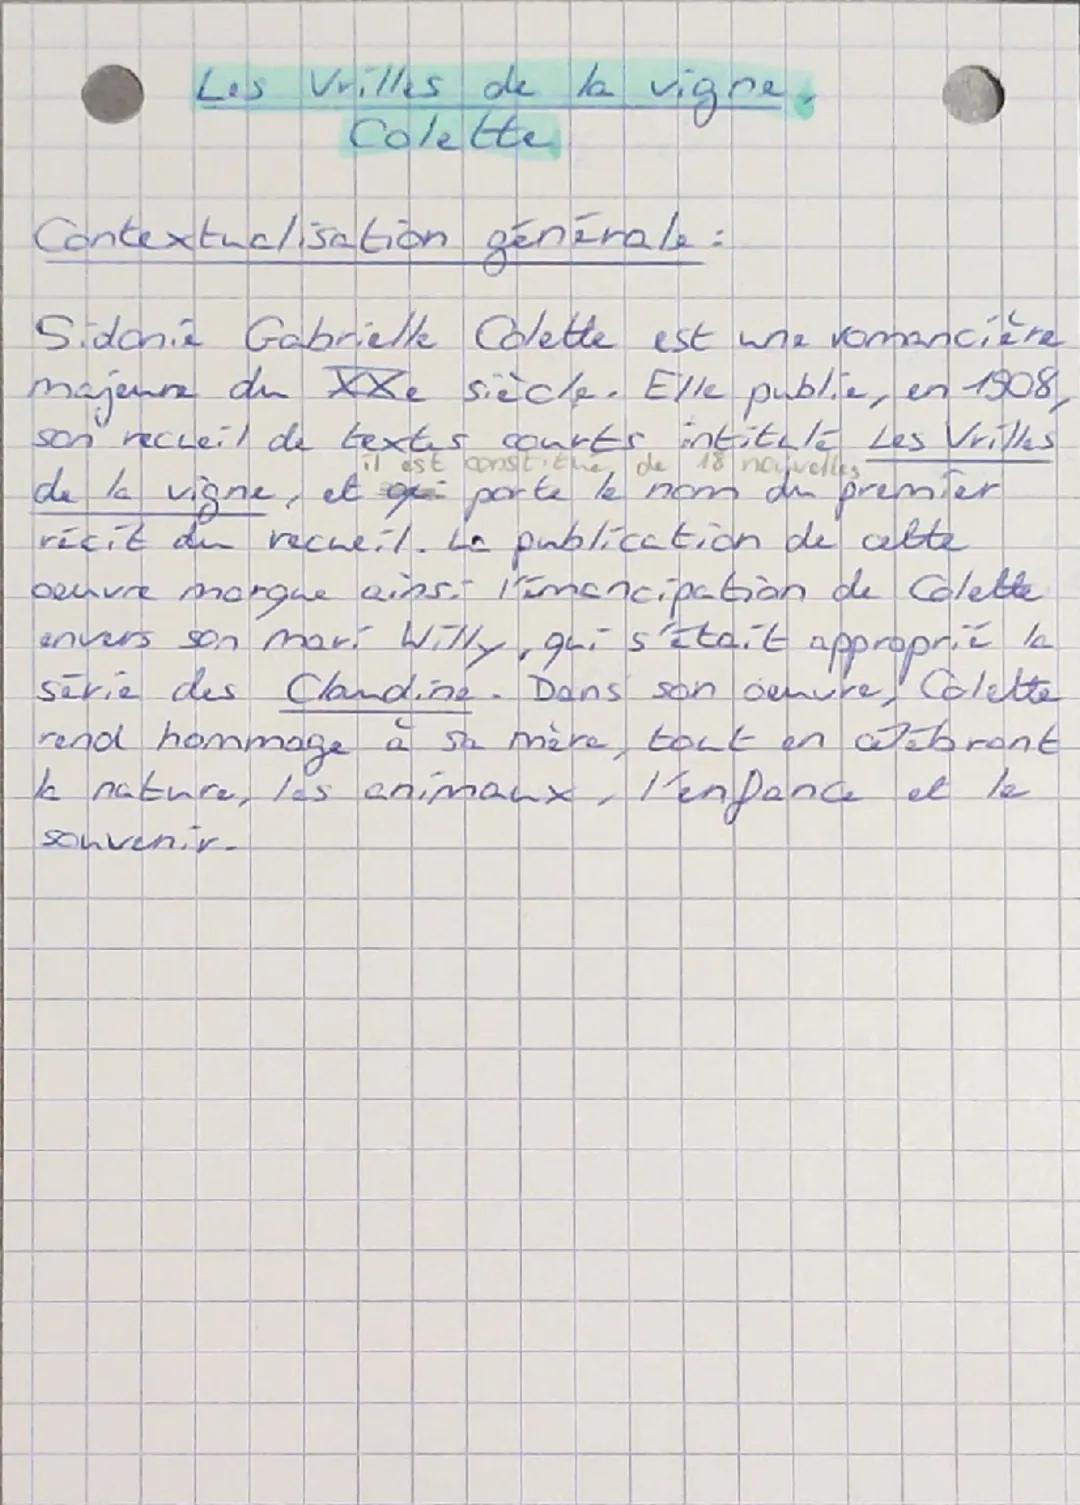 Les Vrilles de la vigne,
Colette
Contextualisation générale :
Sidonie Gabrielle Colette est une romancière
majeure du XXe siècle. Elle publie, en 1908,
son recueil de textes courts intitulé Les Vrilles
il est constitué de 18 nouvelles
de la vigne, et qui porte le nom du premier
récit du recueil. La publication de cette
oeuvre marque ainsi l'émancipation de Colette
envers son mari Willy, qui s'était approprié la
série des Claudine. Dans son oeuvre, Colette
rend hommage à sa mère, tout en célébrant
la nature, les animaux, l'enfance et le
souvenir.